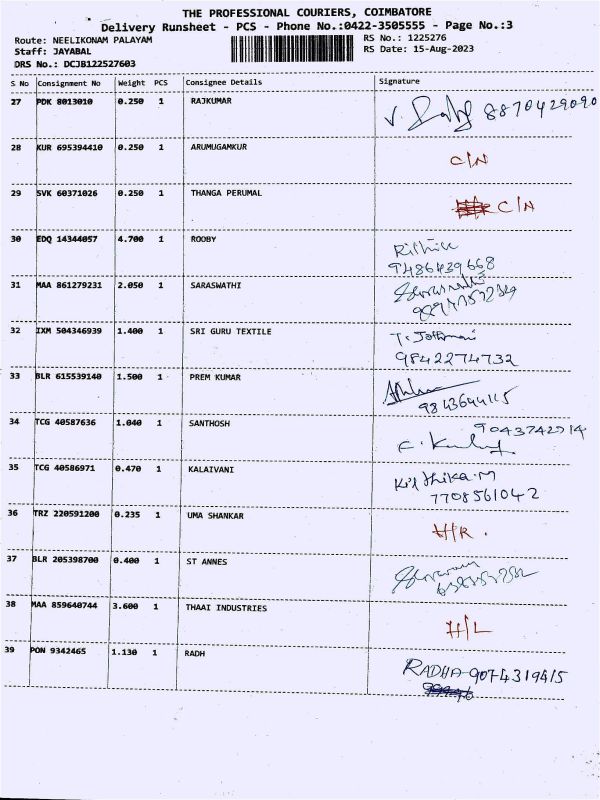 THE PROFESSIONAL COURIERS, COIMBATORE
Delivery Runsheet - PCS - Phone No.:0422-3505555 - Page No.:3
Route: NEELIKONAM PALAYAM RS No.: 1225276
Staff: JAYABAL RS Date: 15-Aug-2023
DRS No.: DCJB122527603
S No Consignment No Weight PCS Consignee Details Signature
27 PDK 8013010 0.250 1 RAJKUMAR 8870429090
28 KUR 695394410 0.250 1 ARUMUGAMKUR C/N
29 SVK 60371026 0.250 1 THANGA PERUMAL C/N
30 EDQ 14344057 4.700 1 ROOBY
9486439668
31 MAA 861279231 2.050 1 SARASWATHI
32 IXM 504346939 1.400 1 SRI GURU TEXTILE
9842274732
33 BLR 615539140 1.500 1 PREM KUMAR
34 TCG 40587636 1.040 1 SANTHOSH
35 TCG 40586971 0.470 1 KALAIVANI
7708561042
36 TRZ 220591200 0.235 1 UMA SHANKAR H/R.
37 BLR 205398700 0.400 1 ST ANNES
38 MAA 859640744 3.600 1 THAAI INDUSTRIES H/L
39 PON 9342465 1.130 1 RADH
RADHA-9074319415